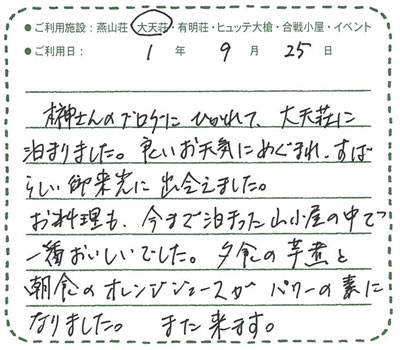 ●ご利用施設：燕山荘・大天荘・有明荘・ヒュッテ大槍・合戦小屋・イベント
●ご利用日： 1 年 9 月 25 日
榊さんのブログに ひかれて、大天荘に
泊まりました。良いお天気にめぐまれ、すば
らしい御来光に出会えました。
お料理も、今まで泊まった山小屋の中で
一番おいしいでした。夕食の芋煮と
朝食のオレンジジュースが パワーの素に
なりました。 また来ます。